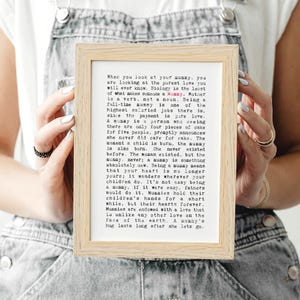 When you look at your mummy, you
are looking at the purest love you
will ever know. Biology is the least
of what makes someone a Mummy. Mother
is a verb, not a noun. Being a
full-time mummy is one of the
highest salaried jobs there is,
since the payment is pure love.
A mummy is a person who seeing
there are only four pieces of cake
for five people, promptly announces
she never did care for cake. The
moment a child is born, the mummy
is also born. She never existed
before. The woman existed, but the
mummy, never; a mummy is something
absolutely new. Being a mummy means
that your heart is no longer
yours; it wonders wherever your
children do. It's not easy being
a mummy, if it were easy, fathers
would do it. Mummies hold their
children's hands for a short
while, but their hearts forever.
Mummies are endowed with a love that
is unlike any other love on the
face of the earth. A mummy's
hug lasts long after she lets go.